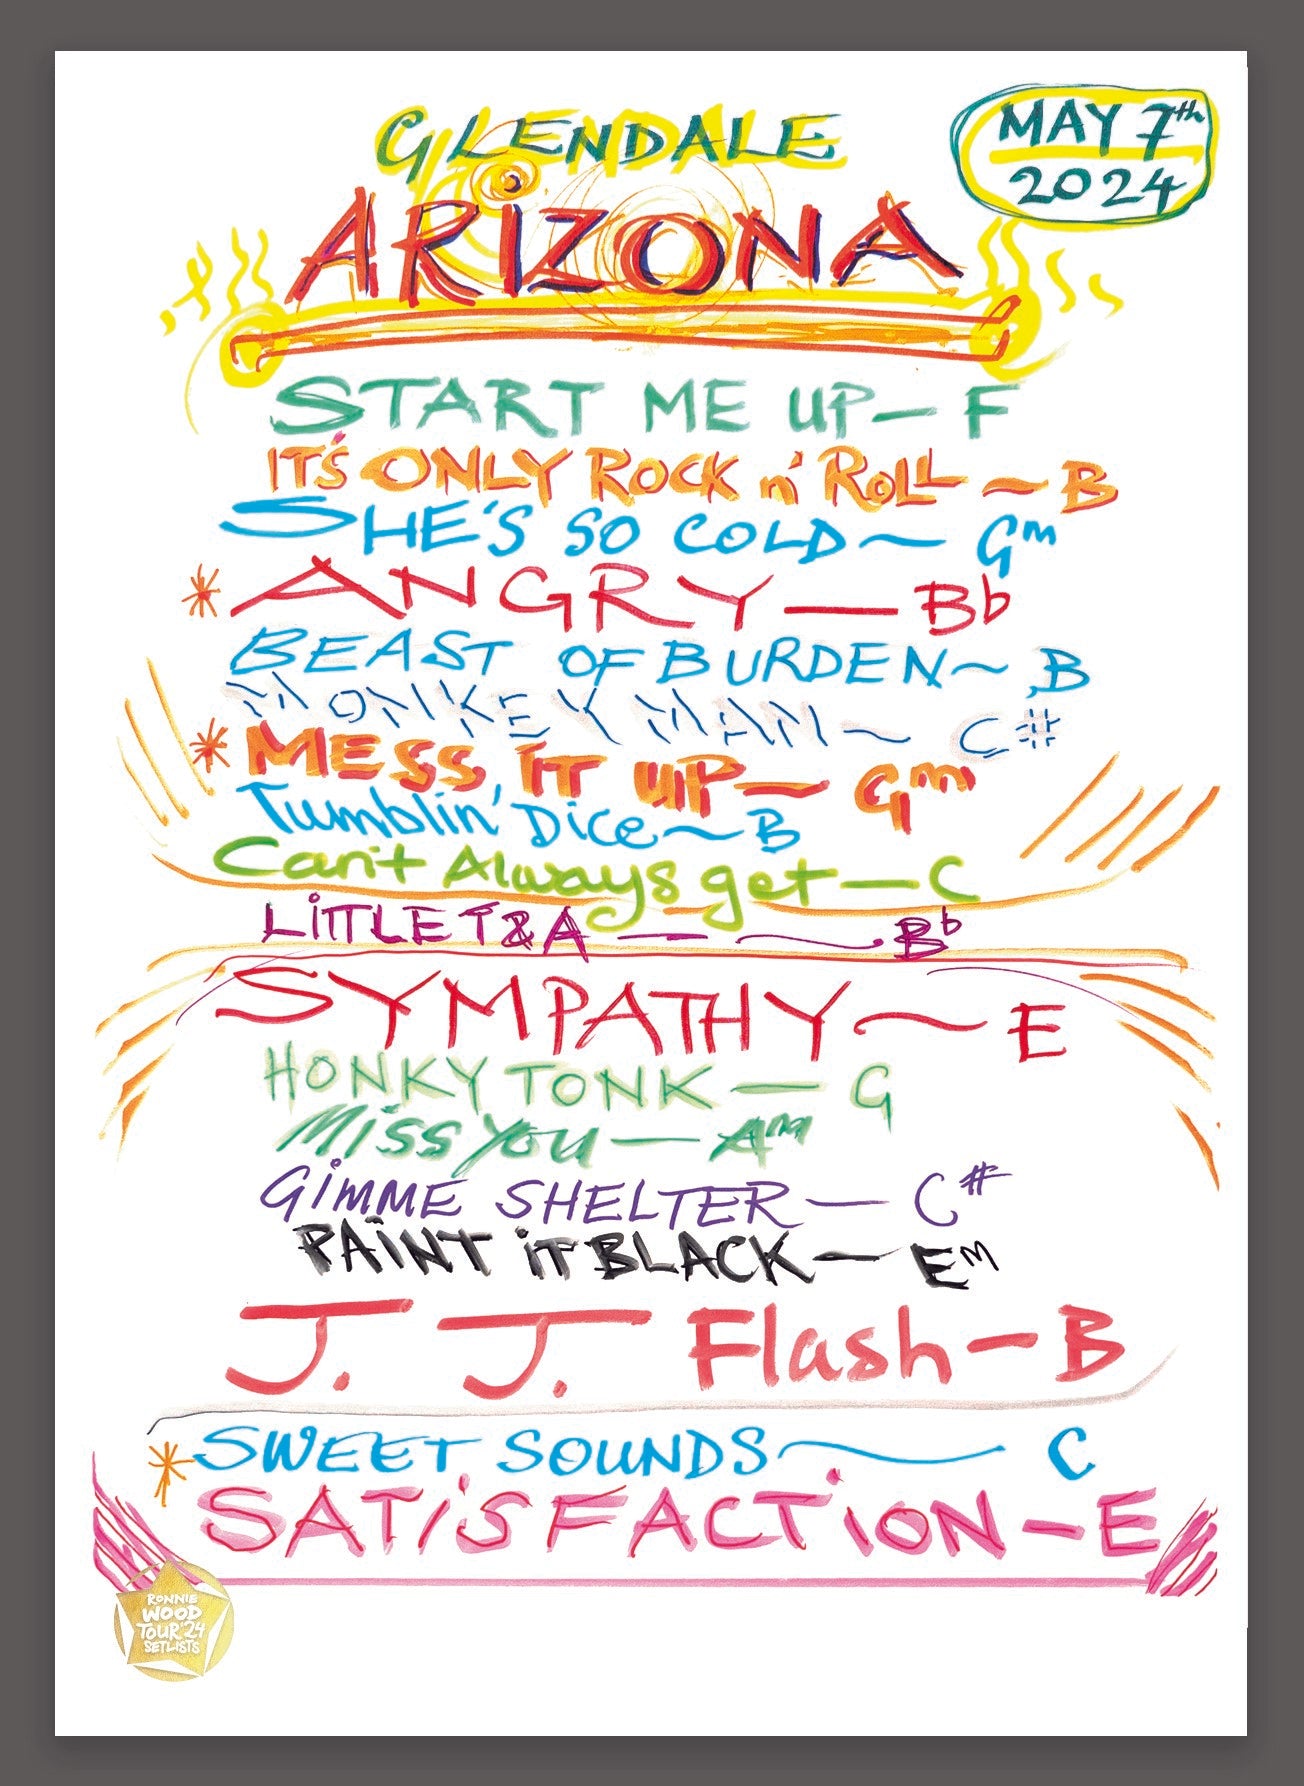 GLENDALE
ARiZONA
MAY 7th
2024
START ME UP — F
IT'S ONLY ROCK n' ROLL ~ B
SHE'S SO COLD ~ Gm
* ANGRY — Bb
BEAST OF BURDEN ~ B
MONKEY MAN ~ C#
* MESS IT UP — Gm
Tumblin' Dice ~ B
Can't Always get — C
LiTTLE T&A — ~ Bb
SYMPATHY ~ E
HONKY TONK — G
Miss You — AM
GiMME SHELTER — C#
PAiNT iT BLACK — EM
J. J. Flash — B
* SWEET SOUNDS ~ C
SATiSFACTiON — E
RONNIE
WOOD
TOUR '24
SETLISTS